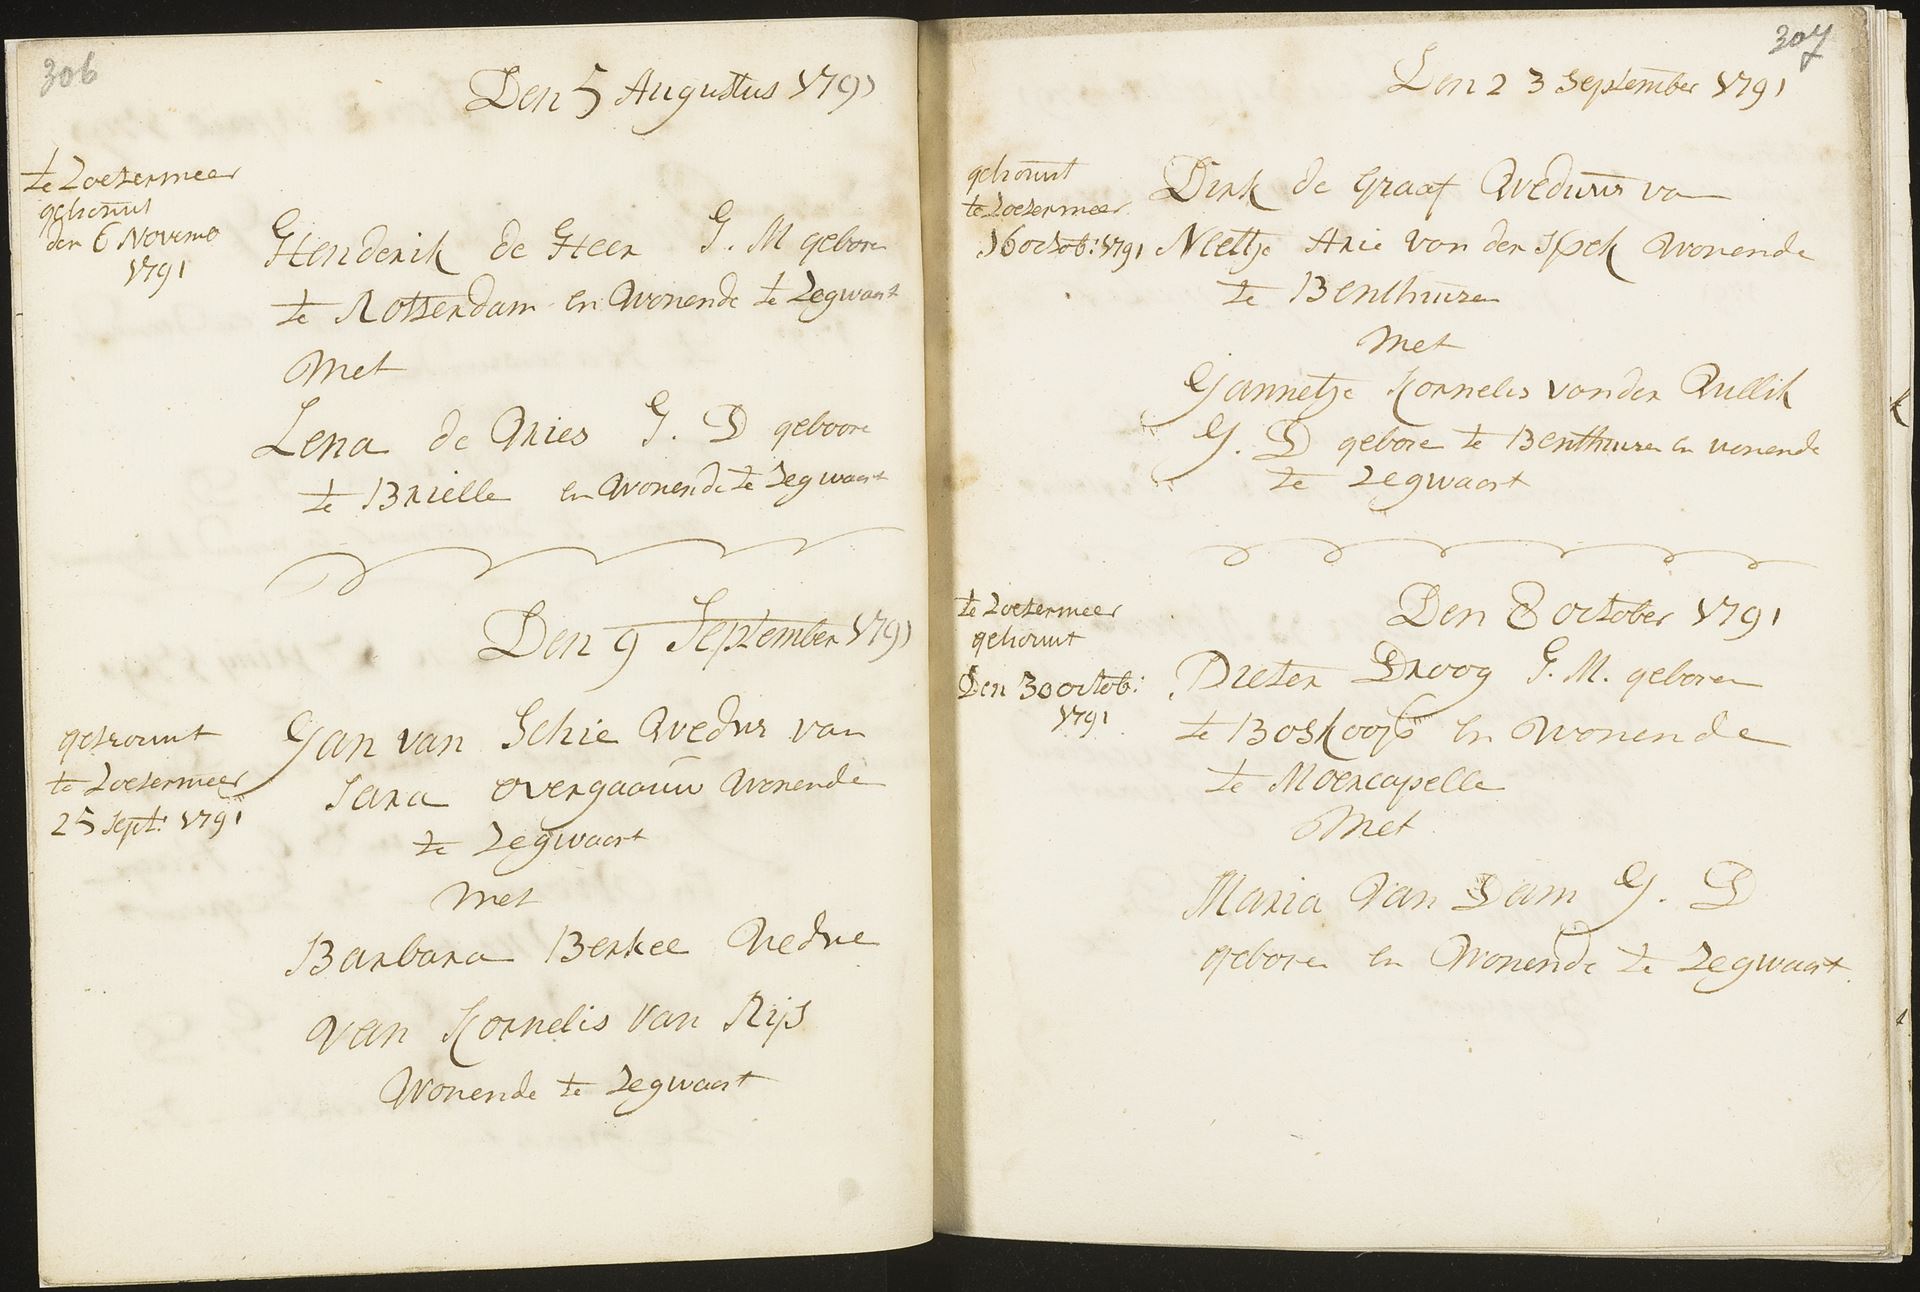 306
Den 5 Augustus 1791
te Zoetermeer
getrouut
den 6 Novemb
1791
Henderik de Heer J. M gebore
te Rotterdam en Wonende te Zegwaart
Met
Lena de Vries J. D geboore
te Brielle en Wonende te Zegwaart
Den 9 September 1791
getrouut
te Zoetermeer
25 Sept: 1791
Jan van Schie Wedur van
Sara overgaauw Wonende
te Zegwaart
Met
Barbara Berkee Wedue
van Kornelis van Rijs
Wonende te Zegwaart
307
Den 23 September 1791
getrouut
te Zoetermeer
16 octob: 1791
Dirk de Graaf Weduur van
Neeltje Arie van der Spek Wonende
te Benthuizen
Met
Jannetje Kornelis van der Wellik
J. D gebore te Benthuizen en wonende
te Zegwaart
Den 8 october 1791
te Zoetermeer
getrouut
Den 30 octob:
1791
Pieter Droog J. M. geboren
te Boskoop en Wonende
te Moercapelle
Met
Maria Van Dam J. D
geboren en Wonende te Zegwaart